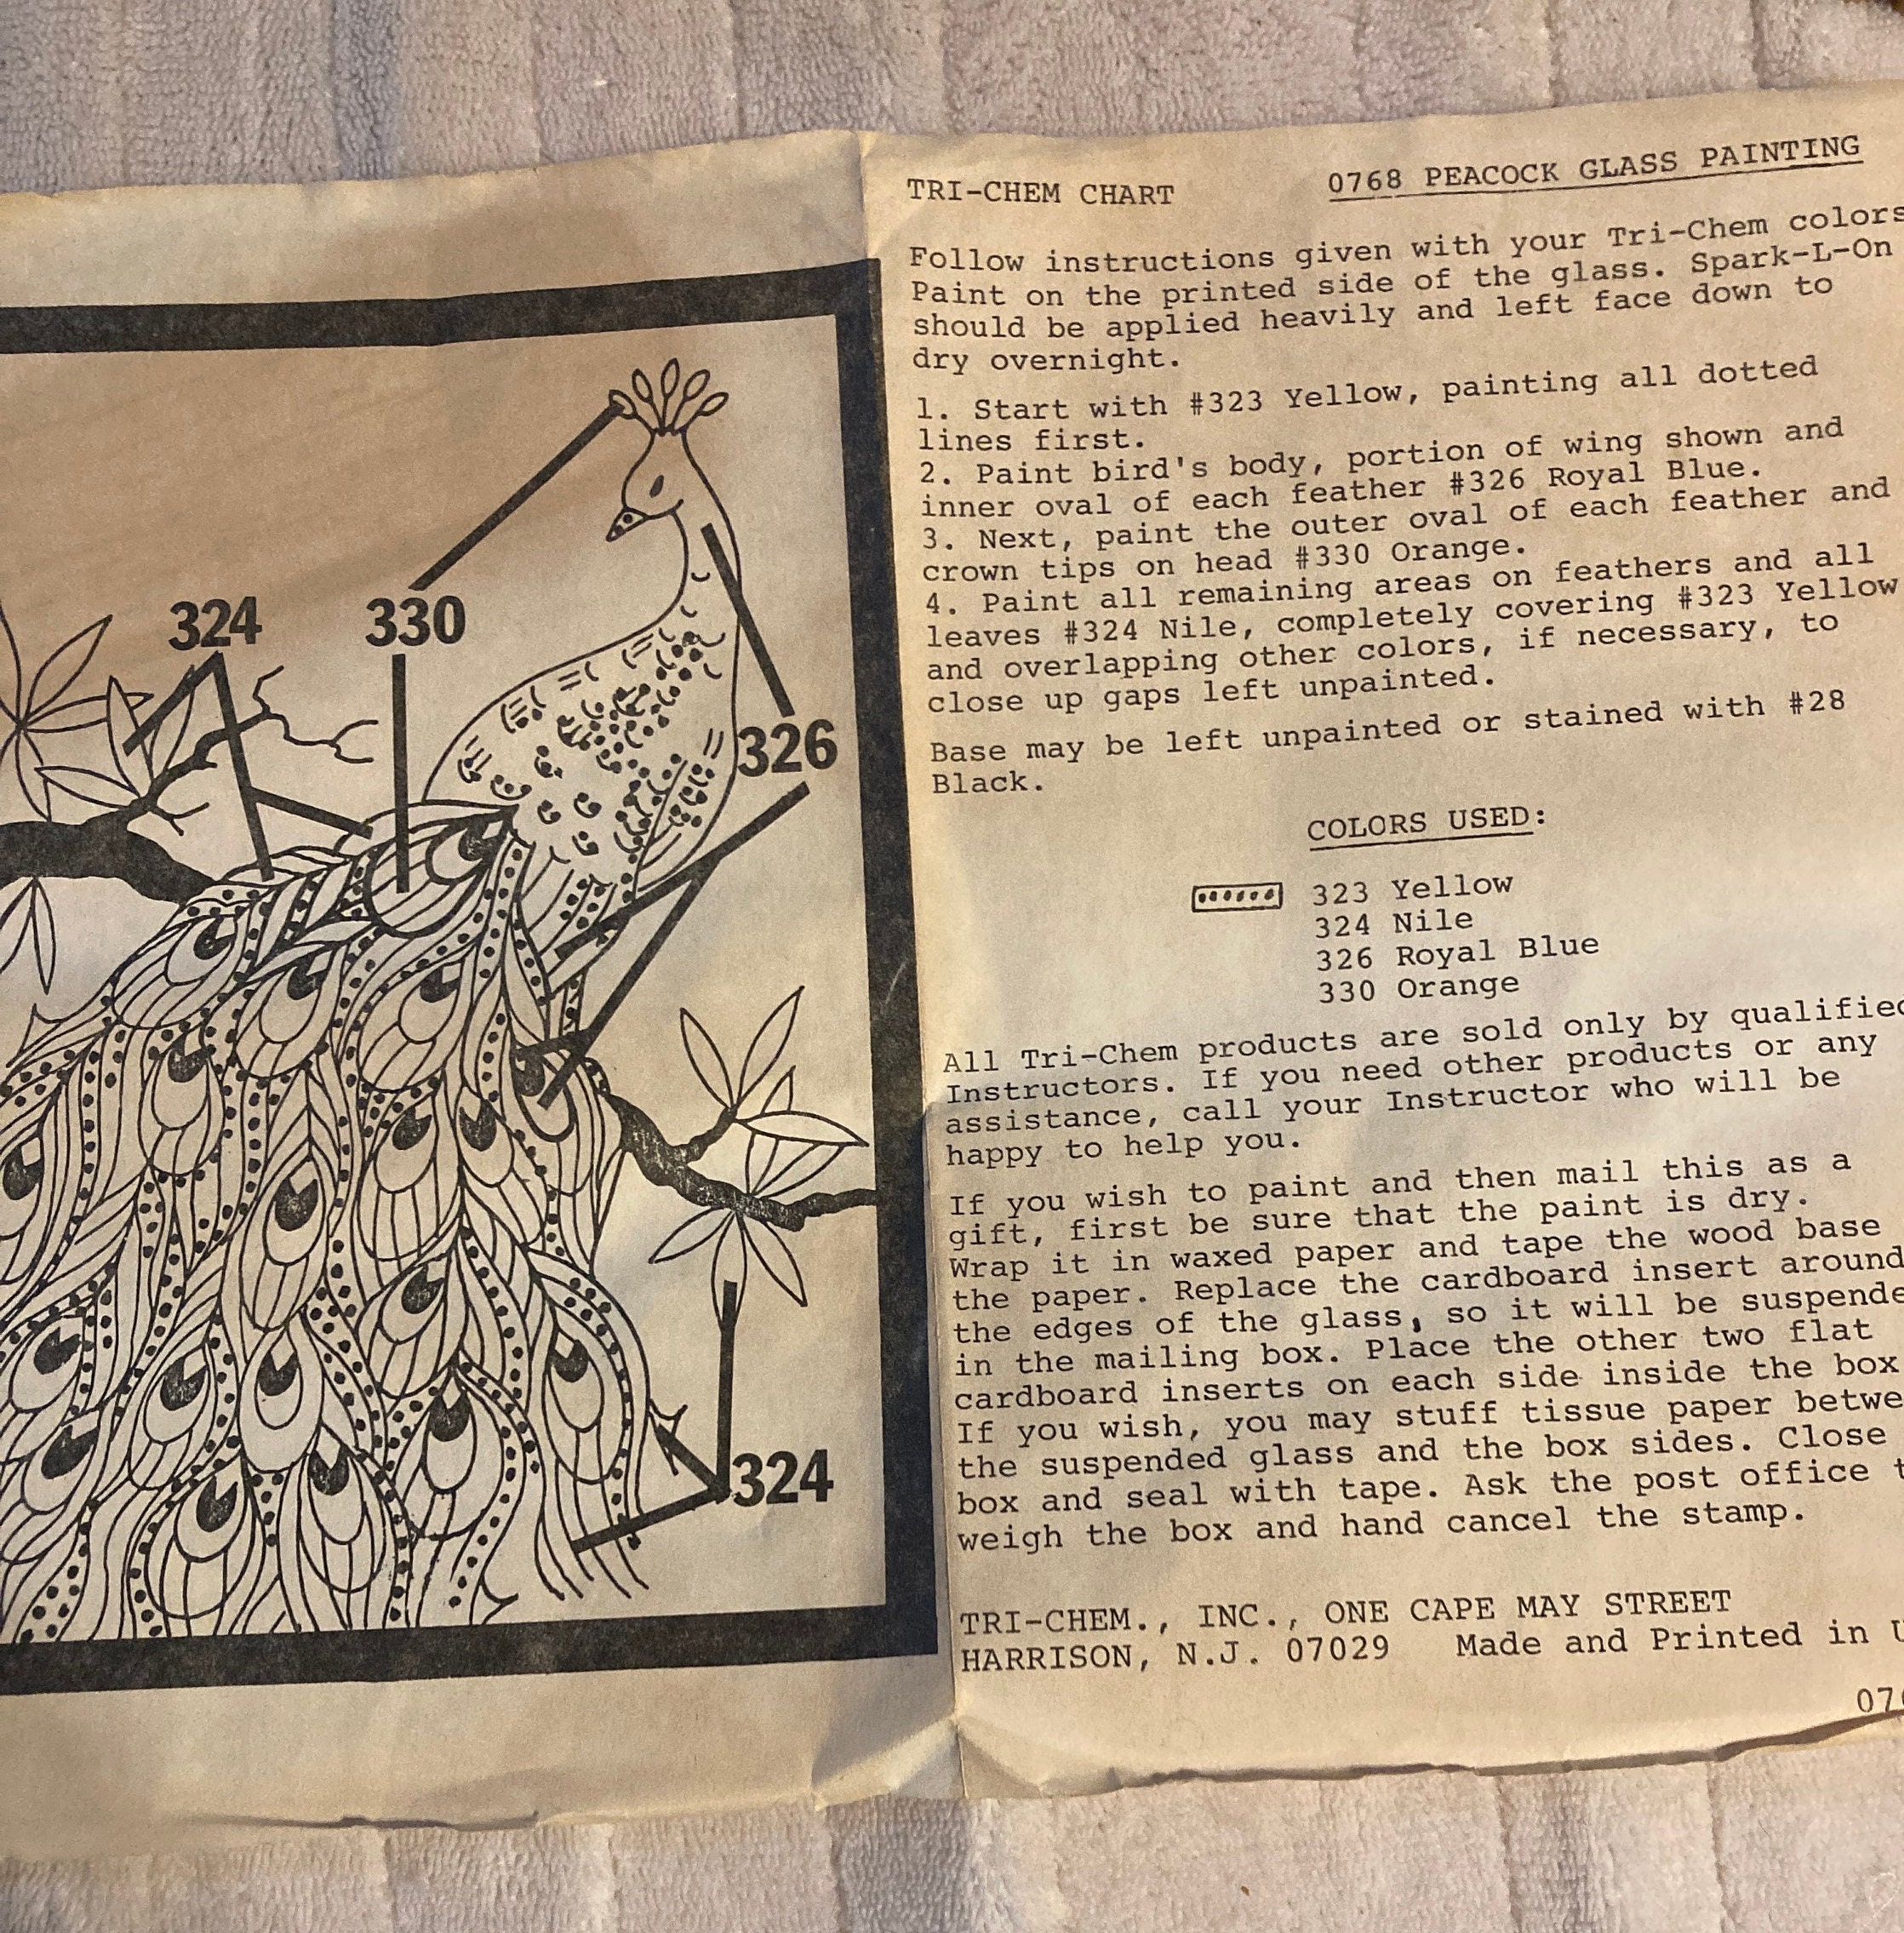 324
330
326
324
TRI-CHEM CHART 0768 PEACOCK GLASS PAINTING
Follow instructions given with your Tri-Chem colors
Paint on the printed side of the glass. Spark-L-On
should be applied heavily and left face down to
dry overnight.
1. Start with #323 Yellow, painting all dotted
lines first.
2. Paint bird's body, portion of wing shown and
inner oval of each feather #326 Royal Blue.
3. Next, paint the outer oval of each feather and
crown tips on head #330 Orange.
4. Paint all remaining areas on feathers and all
leaves #324 Nile, completely covering #323 Yellow
and overlapping other colors, if necessary, to
close up gaps left unpainted.
Base may be left unpainted or stained with #28
Black.
COLORS USED:
323 Yellow
324 Nile
326 Royal Blue
330 Orange
All Tri-Chem products are sold only by qualified
Instructors. If you need other products or any
assistance, call your Instructor who will be
happy to help you.
If you wish to paint and then mail this as a
gift, first be sure that the paint is dry.
Wrap it in waxed paper and tape the wood base
the paper. Replace the cardboard insert around
the edges of the glass, so it will be suspende
in the mailing box. Place the other two flat
cardboard inserts on each side inside the box
If you wish, you may stuff tissue paper betwe
the suspended glass and the box sides. Close
box and seal with tape. Ask the post office t
weigh the box and hand cancel the stamp.
TRI-CHEM., INC., ONE CAPE MAY STREET
HARRISON, N.J. 07029 Made and Printed in U
07